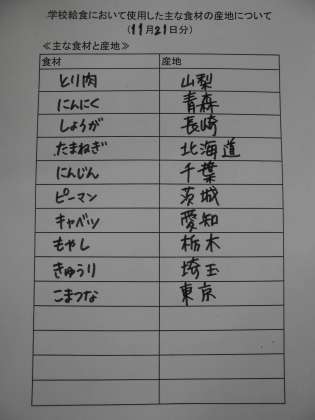 学校給食において使用した主な食材の産地について
(11月21日分)
≪主な食材と産地≫
食材 産地
とり肉 山梨
にんにく 青森
しょうが 長崎
たまねぎ 北海道
にんじん 千葉
ピーマン 茨城
キャベツ 愛知
もやし 栃木
きゅうり 埼玉
こまつな 東京